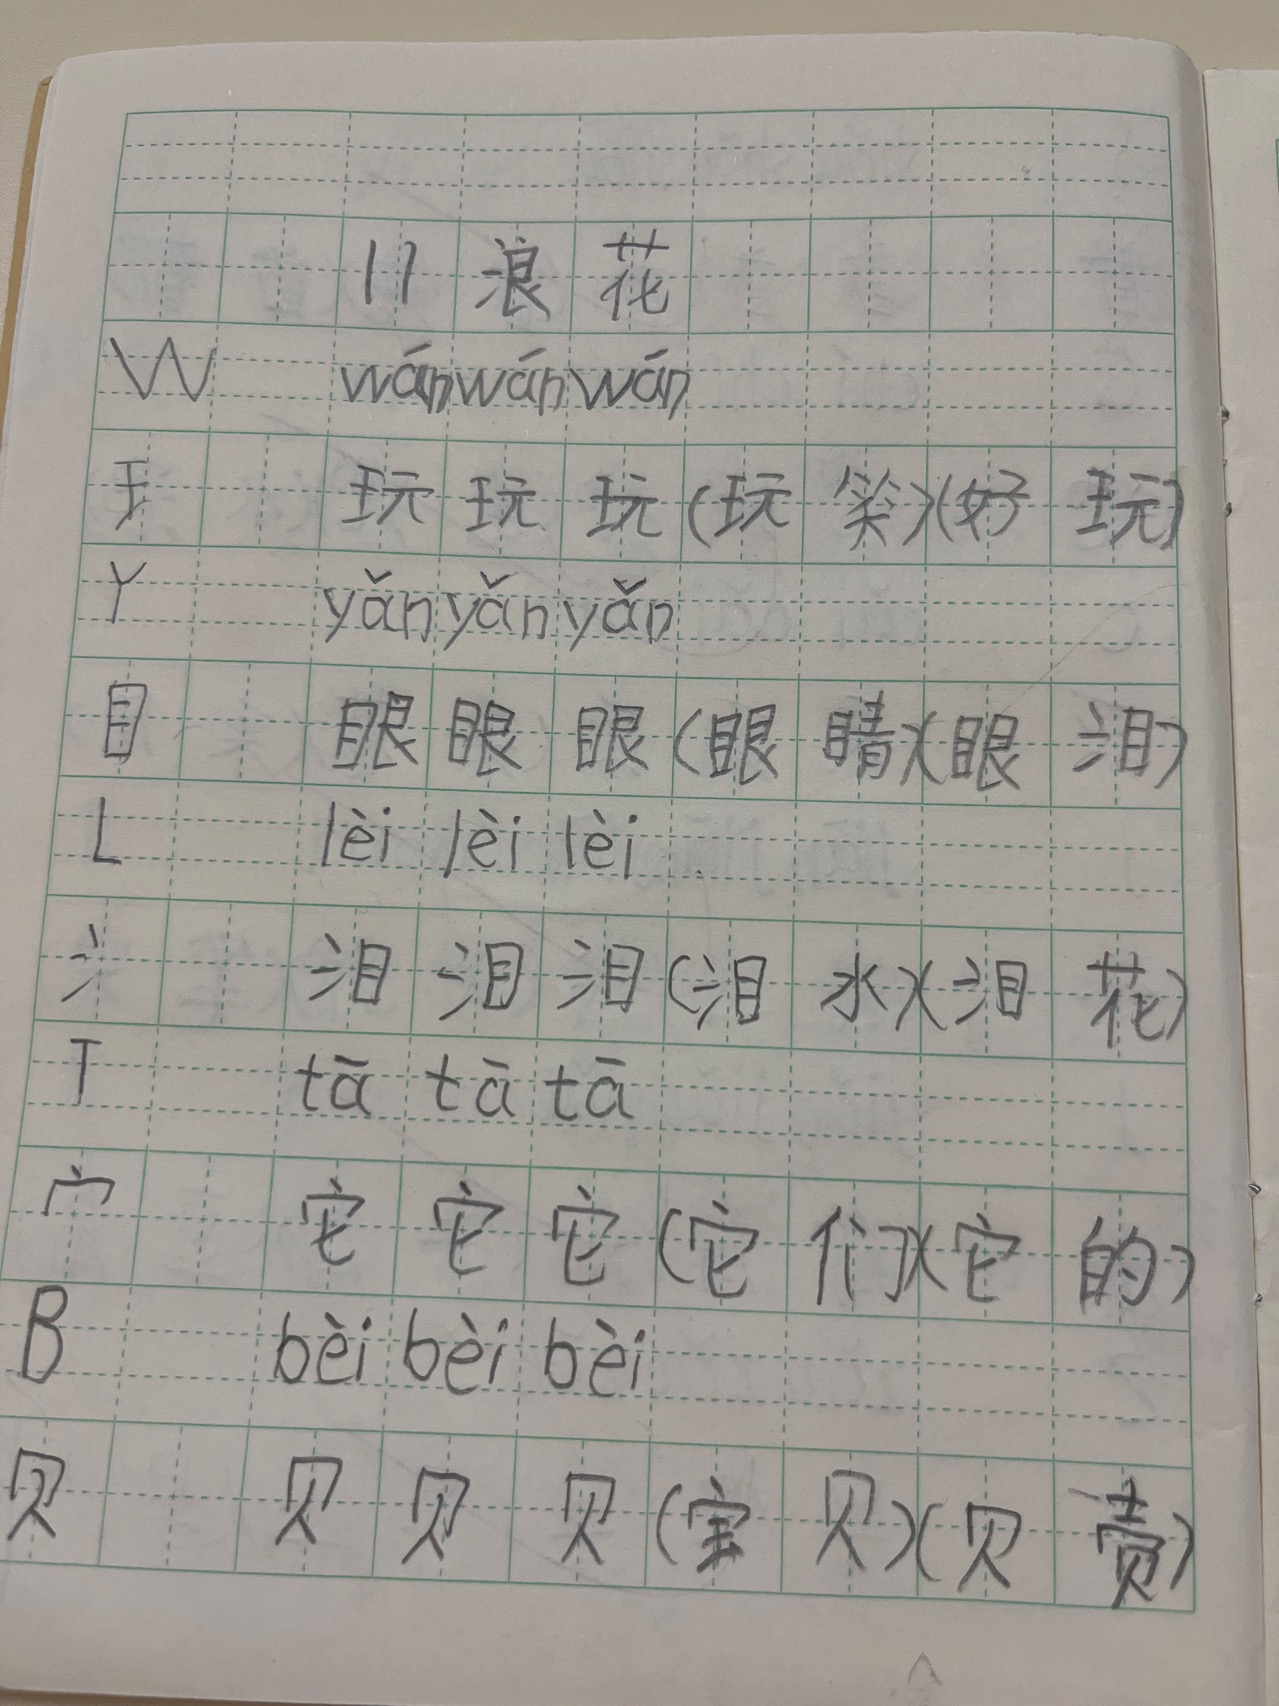 11 浪花
W wán wán wán
王 玩 玩 玩 (玩 笑)(好 玩)
Y yǎn yǎn yǎn
目 眼 眼 眼 (眼 睛)(眼 泪)
L lèi lèi lèi
氵 泪 泪 泪 (泪 水)(泪 花)
T tā tā tā
宀 它 它 它 (它 们)(它 的)
B bèi bèi bèi
贝 贝 贝 贝 (宝 贝)(贝 壳)